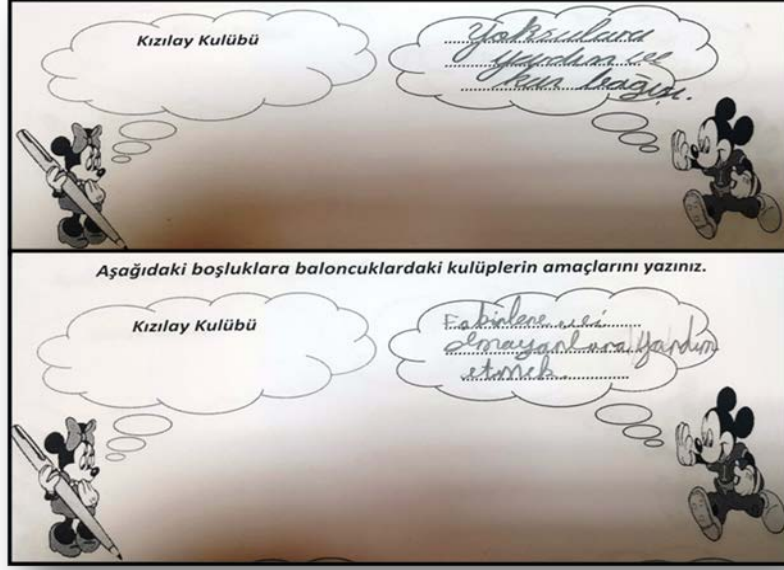 Kızılay Kulübü
Yoksullara
yardım ve
kan bağışı.
Aşağıdaki boşluklara baloncuklardaki kulüplerin amaçlarını yazınız.
Kızılay Kulübü
Fakirlere evi
olmayanlara yardım
etmek.